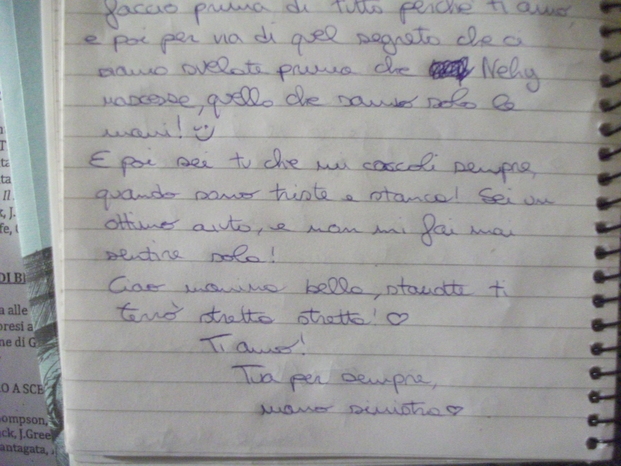 faccio prima di tutto perché ti amo,
e poi per via di quel segreto che ci
siamo svelate prima che
nascesse, quello che sanno solo le
mani!
E poi sei tu che mi coccoli sempre,
quando sono triste e stanca! Sei un
ottimo aiuto, e non mi fai mai
sentire sola!
Ciao bella, stanotte ti
terrò stretta stretta! ♡
Ti amo!
Tua per sempre,
mano sinistra ♡
DI BI
a alle
presi a
ne di G
O A SCE
ompson,
ck, J.Gree
antagata,